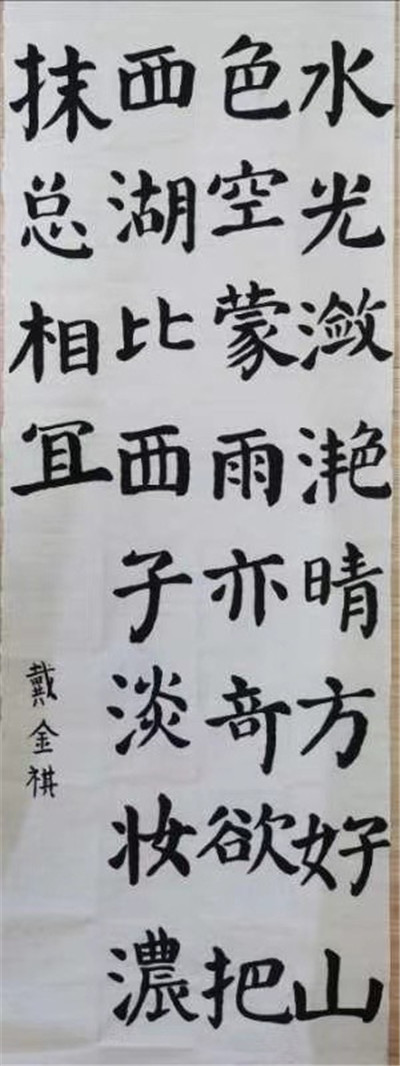 水光潋滟晴方好山
色空蒙雨亦奇欲把
西湖比西子淡妆濃
抹总相冝
戴金祺